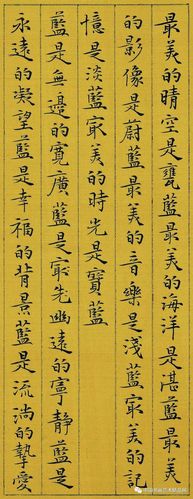 最美的晴空是瓷藍最美的海洋是湛藍最美
的影像是蔚藍最美的音樂是淺藍最美的記
憶是淡藍最美的時光是寶藍
藍是無邊的寬廣藍是最先幽遠的寧靜藍是
永遠的凝望藍是幸福的背景藍是流淌的摯愛